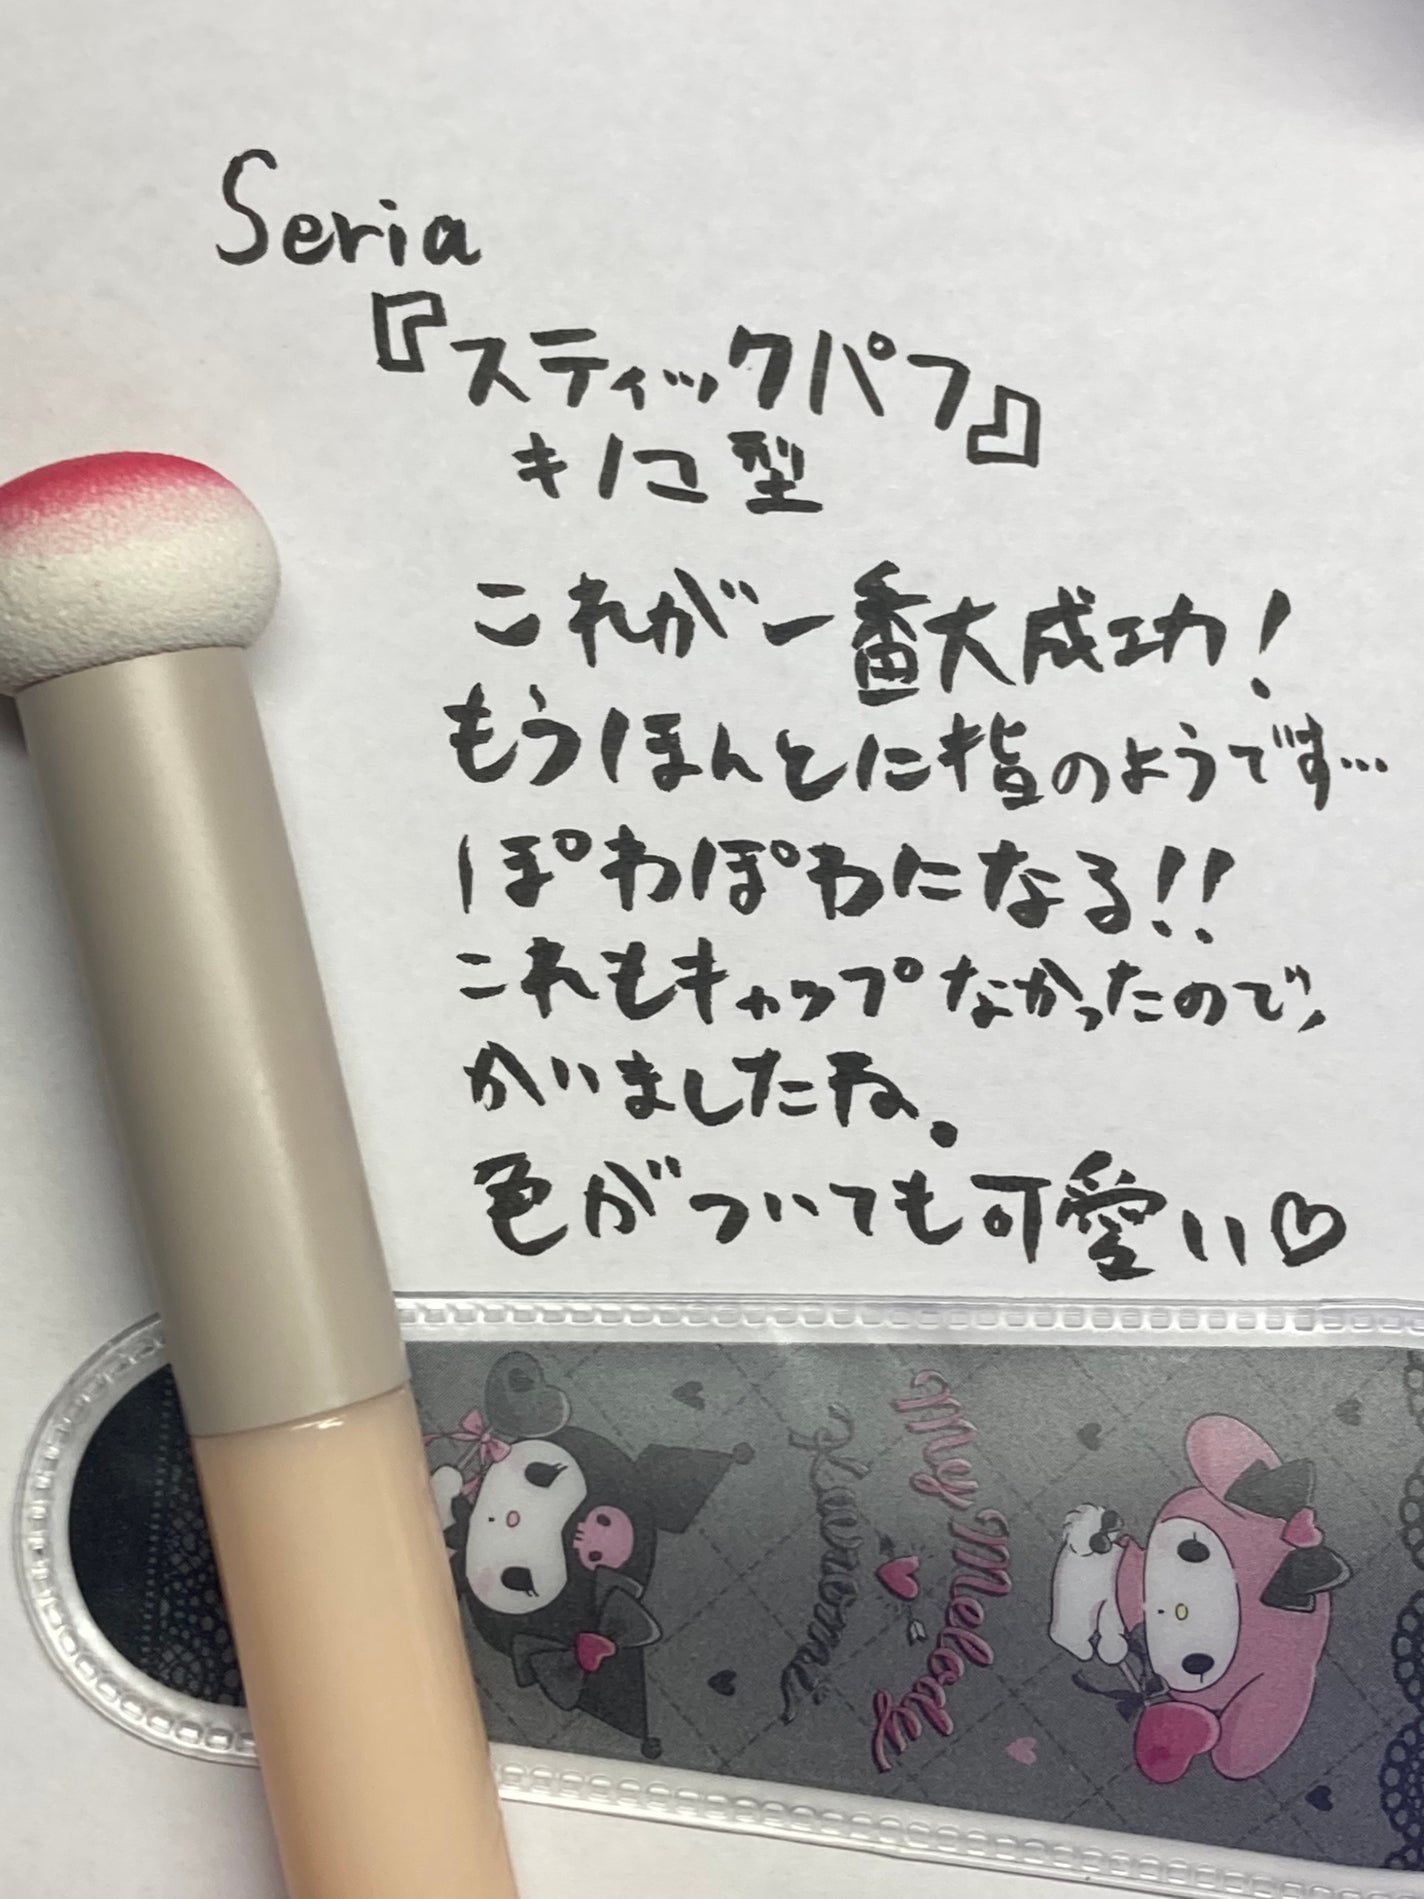 Seria
『スティックパフ』
キノコ型
これが一番大成功!
もうほんとに指のようです…
ぽわぽわになる!!
これもキャップなかったので、
かいましたね。
色がついても可愛い♡
My Melody
Kuromi